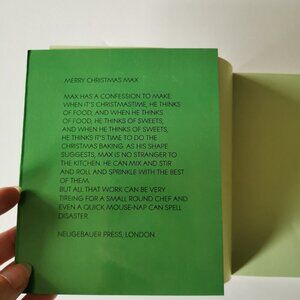 MERRY CHRISTMAS MAX
MAX HAS A CONFESSION TO MAKE:
WHEN IT'S CHRISTMASTIME, HE THINKS
OF FOOD, AND WHEN HE THINKS
OF FOOD, HE THINKS OF SWEETS,
AND WHEN HE THINKS OF SWEETS,
HE THINKS IT'S TIME TO DO THE
CHRISTMAS BAKING. AS HIS SHAPE
SUGGESTS, MAX IS NO STRANGER TO
THE KITCHEN. HE CAN MIX AND STIR
AND ROLL AND SPRINKLE WITH THE BEST
OF THEM.
BUT ALL THAT WORK CAN BE VERY
TIREING FOR A SMALL ROUND CHEF AND
EVEN A QUICK MOUSE-NAP CAN SPELL
DISASTER.
NEUGEBAUER PRESS, LONDON.